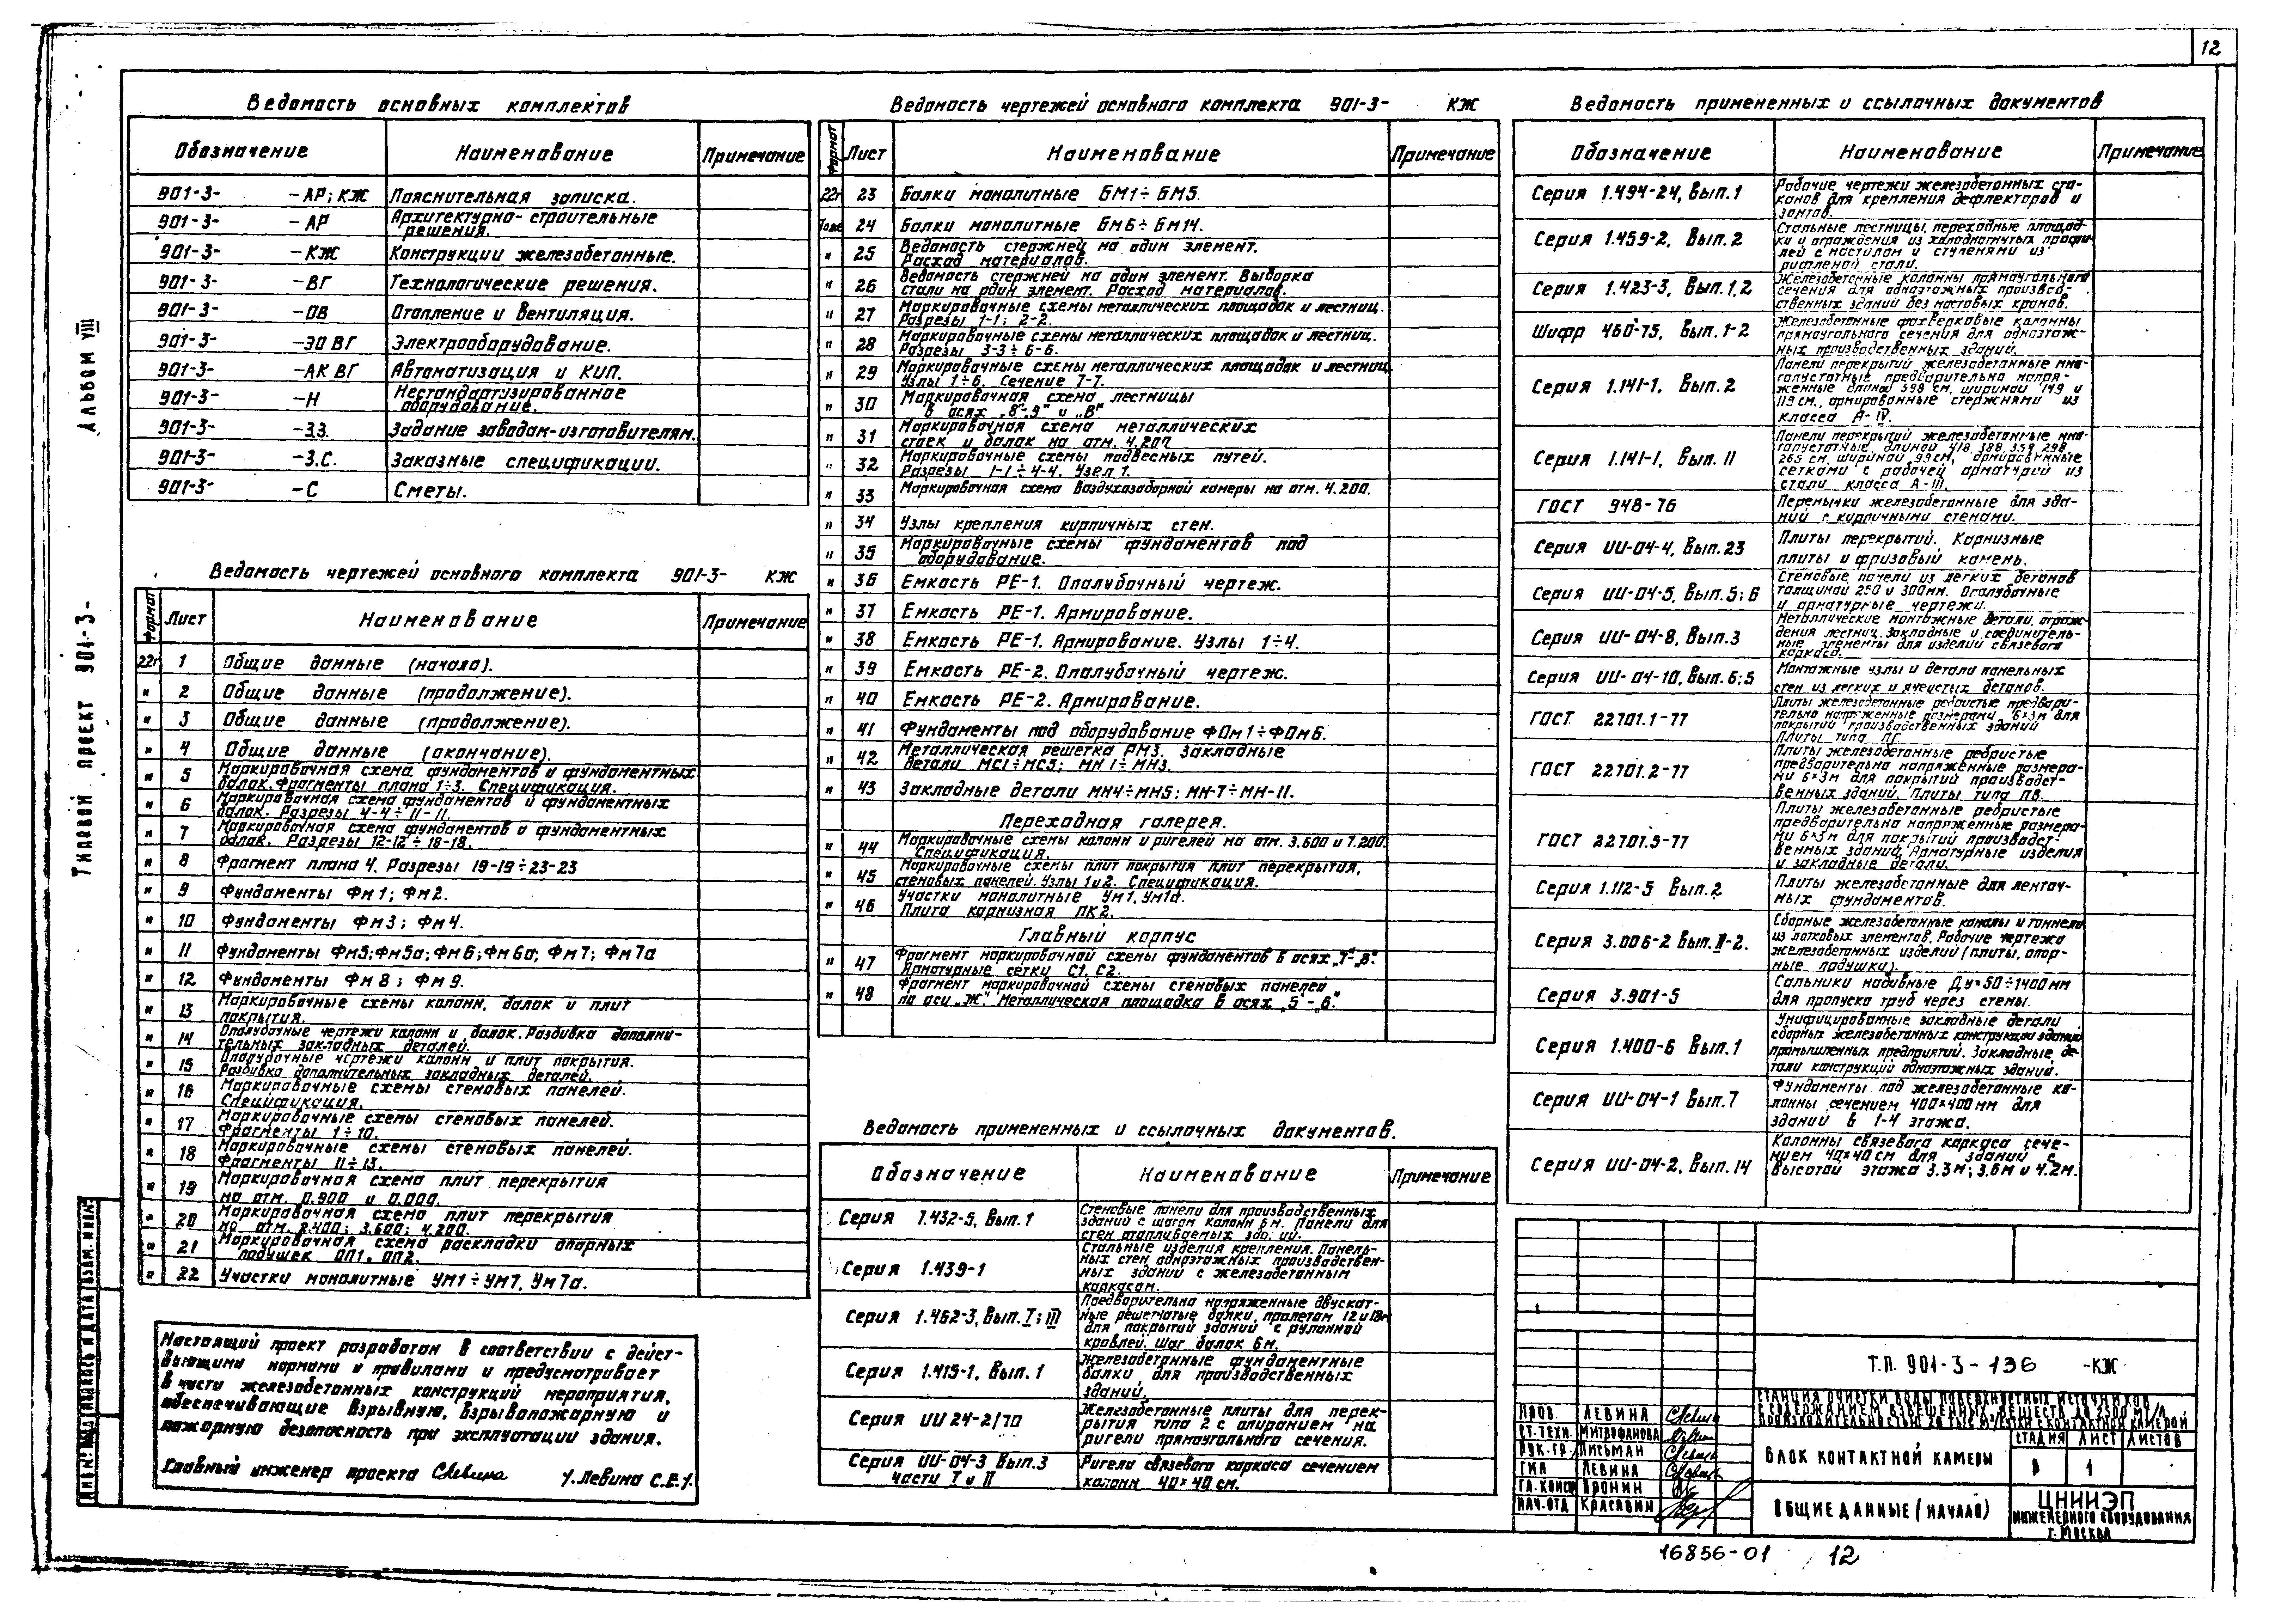 12
Альбом VIII
Типовой проект 901-3-
Ведомость основных комплектов
Обозначение Наименование Примечание
901-3- -АР; КЖ Пояснительная записка.
901-3- -АР Архитектурно-строительные
решения.
901-3- -КЖ Конструкции железобетонные.
901-3- -ВГ Технологические решения.
901-3- -ОВ Отопление и вентиляция.
901-3- -ЭО ВГ Электрооборудование.
901-3- -АК ВГ Автоматизация и КИП.
901-3- -Н Нестандартизированное
оборудование.
901-3- -З.З. Задание заводам-изготовителям.
901-3- -З.С. Заказные спецификации.
901-3- -С Сметы.
Ведомость чертежей основного комплекта 901-3- КЖ
Формат Лист Наименование Примечание
22г 1 Общие данные (начало).
" 2 Общие данные (продолжение).
" 3 Общие данные (продолжение).
" 4 Общие данные (окончание).
" 5 Маркировочная схема фундаментов и фундаментных
балок. Фрагменты плана 1÷3. Спецификация.
" 6 Маркировочная схема фундаментов и фундаментных
балок. Разрезы 4-4÷11-11.
" 7 Маркировочная схема фундаментов и фундаментных
балок. Разрезы 12-12÷18-18.
" 8 Фрагмент плана 4. Разрезы 19-19÷23-23
" 9 Фундаменты Фм1; Фм2.
" 10 Фундаменты Фм3; Фм4.
" 11 Фундаменты Фм5; Фм5а; Фм6; Фм6а; Фм7; Фм7а
" 12 Фундаменты Фм8; Фм9.
" 13 Маркировочные схемы колонн, балок и плит
покрытия.
" 14 Опалубочные чертежи колонн и балок. Разбивка дополни-
тельных закладных деталей.
" 15 Опалубочные чертежи колонн и плит покрытия.
Разбивка дополнительных закладных деталей.
" 16 Маркировочные схемы стеновых панелей.
Спецификация.
" 17 Маркировочные схемы стеновых панелей.
Фрагменты 1÷10.
" 18 Маркировочные схемы стеновых панелей.
Фрагменты 11÷13.
" 19 Маркировочная схема плит перекрытия
на отм. 0.900 и 0.000.
" 20 Маркировочная схема плит перекрытия
на отм. 2.400; 3.600; 4.200.
" 21 Маркировочная схема раскладки опорных
подушек ОП1, ОП2.
" 22 Участки монолитные УМ1÷УМ7, УМ7а.
Настоящий проект разработан в соответствии с дейст-
вующими нормами и правилами и предусматривает
в части железобетонных конструкций мероприятия,
обеспечивающие взрывную, взрывопожарную и
пожарную безопасность при эксплуатации здания.
Главный инженер проекта /Левина С.Е./
Ведомость чертежей основного комплекта 901-3- КЖ
Формат Лист Наименование Примечание
22г 23 Балки монолитные БМ1÷БМ5.
Тоже 24 Балки монолитные БМ6÷БМ14.
" 25 Ведомость стержней на один элемент.
Расход материалов.
" 26 Ведомость стержней на один элемент. Выборка
стали на один элемент. Расход материалов.
" 27 Маркировочные схемы металлических площадок и лестниц.
Разрезы 1-1; 2-2.
" 28 Маркировочные схемы металлических площадок и лестниц.
Разрезы 3-3÷6-6.
" 29 Маркировочные схемы металлических площадок и лестниц
Узлы 1÷6. Сечение 7-7.
" 30 Маркировочная схема лестницы
в осях „8-9" и „В"
" 31 Маркировочная схема металлических
стоек и балок на отм. 4.200
" 32 Маркировочные схемы подвесных путей.
Разрезы 1-1÷4-4. Узел 1.
" 33 Маркировочная схема воздухозаборной камеры на отм. 4.200.
" 34 Узлы крепления кирпичных стен.
" 35 Маркировочные схемы фундаментов под
оборудование.
" 36 Емкость РЕ-1. Опалубочный чертеж.
" 37 Емкость РЕ-1. Армирование.
" 38 Емкость РЕ-1. Армирование. Узлы 1÷4.
" 39 Емкость РЕ-2. Опалубочный чертеж.
" 40 Емкость РЕ-2. Армирование.
" 41 Фундаменты под оборудование ФОм1÷ФОм6.
" 42 Металлическая решетка РМ3. Закладные
детали МС1÷МС5; МН1÷МН3.
" 43 Закладные детали МН4÷МН5; МН-7÷МН-11.
Переходная галерея.
" 44 Маркировочные схемы колонн и ригелей на отм. 3.600 и 7.200.
Спецификация.
" 45 Маркировочные схемы плит покрытия плит перекрытия,
стеновых панелей. Узлы 1и2. Спецификация.
" 46 Участки монолитные УМ1, УМ1а.
Плита карнизная ПК2.
Главный корпус
" 47 Фрагмент маркировочной схемы фундаментов в осях „7"-„8".
Арматурные сетки С1, С2.
" 48 Фрагмент маркировочной схемы стеновых панелей
по оси „Ж". Металлическая площадка в осях „5"-„6".
Ведомость примененных и ссылочных документов.
Обозначение Наименование Примечание
Серия 1.432-5, Вып. 1 Стеновые панели для производственных
зданий с шагом колонн 6м. Панели для
стен отапливаемых зданий.
Серия 1.439-1 Стальные изделия крепления. Панель-
ных стен одноэтажных производствен-
ных зданий с железобетонным
каркасом.
Серия 1.462-3, Вып. I; III Предварительно напряженные двускат-
ные решетчатые балки, пролетом 12 и 18м
для покрытий зданий с рулонной
кровлей. Шаг балок 6м.
Серия 1.415-1, Вып. 1 Железобетонные фундаментные
балки для производственных
зданий.
Серия ИИ 24-2/70 Железобетонные плиты для перек-
рытия типа 2 с опиранием на
ригели прямоугольного сечения.
Серия ИИ-04-3 Вып. 3
части I и II Ригели связевого каркаса сечением
колонн 40×40 см.
Ведомость примененных и ссылочных документов
Обозначение Наименование Примечание
Серия 1.494-24, Вып. 1 Рабочие чертежи железобетонных ста-
канов для крепления дефлекторов и
зонтов.
Серия 1.459-2, Вып. 2 Стальные лестницы, переходные площад-
ки и ограждения из холодногнутых профи-
лей с настилом и ступенями из
рифленой стали.
Серия 1.423-3, Вып. 1,2 Железобетонные колонны прямоугольного
сечения для одноэтажных производ-
ственных зданий без мостовых кранов.
Шифр 460-75, Вып. 1-2 Железобетонные фахверковые колонны
прямоугольного сечения для одноэтаж-
ных производственных зданий.
Серия 1.141-1, Вып. 2 Панели перекрытий железобетонные мно-
гопустотные предварительно напря-
женные длиной 598 см, шириной 149 и
119 см, армированные стержнями из
класса А-IV.
Серия 1.141-1, Вып. 11 Панели перекрытий железобетонные мно-
гопустотные, длиной 418, 388, 358, 298,
265 см, шириной 99см, армированные
сетками с рабочей арматурой из
стали класса А-III.
ГОСТ 948-76 Перемычки железобетонные для зда-
ний с кирпичными стенами.
Серия ИИ-04-4, Вып. 23 Плиты перекрытий. Карнизные
плиты и фризовый камень.
Серия ИИ-04-5, Вып. 5; 6 Стеновые панели из легких бетонов
толщиной 250 и 300мм. Опалубочные
и арматурные чертежи.
Серия ИИ-04-8, Вып. 3 Металлические монтажные детали, ограж-
дения лестниц, закладные и соединитель-
ные элементы для изделий связевого
каркаса.
Серия ИИ-04-10, Вып. 6; 5 Монтажные узлы и детали панельных
стен из легких и ячеистых бетонов.
ГОСТ 22701.1-77 Плиты железобетонные ребристые предвари-
тельно напряженные размерами 6×3м для
покрытий производственных зданий
Плиты типа ПГ.
ГОСТ 22701.2-77 Плиты железобетонные ребристые
предварительно напряженные размера-
ми 6×3м для покрытий производст-
венных зданий. Плиты типа ПВ.
ГОСТ 22701.5-77 Плиты железобетонные ребристые
предварительно напряженные размера-
ми 6×3м для покрытий производст-
венных зданий. Арматурные изделия
и закладные детали.
Серия 1.112-5 Вып. 2 Плиты железобетонные для ленточ-
ных фундаментов.
Серия 3.006-2 Вып. II-2. Сборные железобетонные каналы и тоннели
из лотковых элементов. Рабочие чертежи
железобетонных изделий (плиты, опор-
ные подушки).
Серия 3.901-5 Сальники набивные Ду=50÷1400мм
для пропуска труб через стены.
Серия 1.400-6 Вып. 1 Унифицированные закладные детали
сборных железобетонных конструкций зданий
промышленных предприятий. Закладные де-
тали конструкций одноэтажных зданий.
Серия ИИ-04-1 Вып. 7 Фундаменты под железобетонные ко-
лонны сечением 400×400мм для
зданий в 1-4 этажа.
Серия ИИ-04-2, Вып. 14 Колонны связевого каркаса сече-
нием 40×40 см для зданий с
высотой этажа 3.3м; 3.6м и 4.2м.
Т.П. 901-3-136 -КЖ
СТАНЦИЯ ОЧИСТКИ ВОДЫ ПОВЕРХНОСТНЫХ ИСТОЧНИКОВ
С СОДЕРЖАНИЕМ ВЗВЕШЕННЫХ ВЕЩЕСТВ ДО 2500 МГ/Л
ПРОИЗВОДИТЕЛЬНОСТЬЮ 20 ТЫС М3/СУТКИ С КОНТАКТНОЙ КАМЕРОЙ
ПРОВ. ЛЕВИНА
СТ.ТЕХН. МИТРОФАНОВА
РУК.ГР. ПИСЬМАН
ГИП ЛЕВИНА
ГЛ.КОНСТ АРОНИН
НАЧ.ОТД КРАСАВИН
БЛОК КОНТАКТНОЙ КАМЕРЫ
СТАДИЯ ЛИСТ ЛИСТОВ
Р 1
ОБЩИЕ ДАННЫЕ (НАЧАЛО)
ЦНИИЭП
ИНЖЕНЕРНОГО ОБОРУДОВАНИЯ
Г. МОСКВА
ИНВ.№ ПОДЛ ПОДПИСЬ И ДАТА ВЗАМ. ИНВ.№
16856-01 12